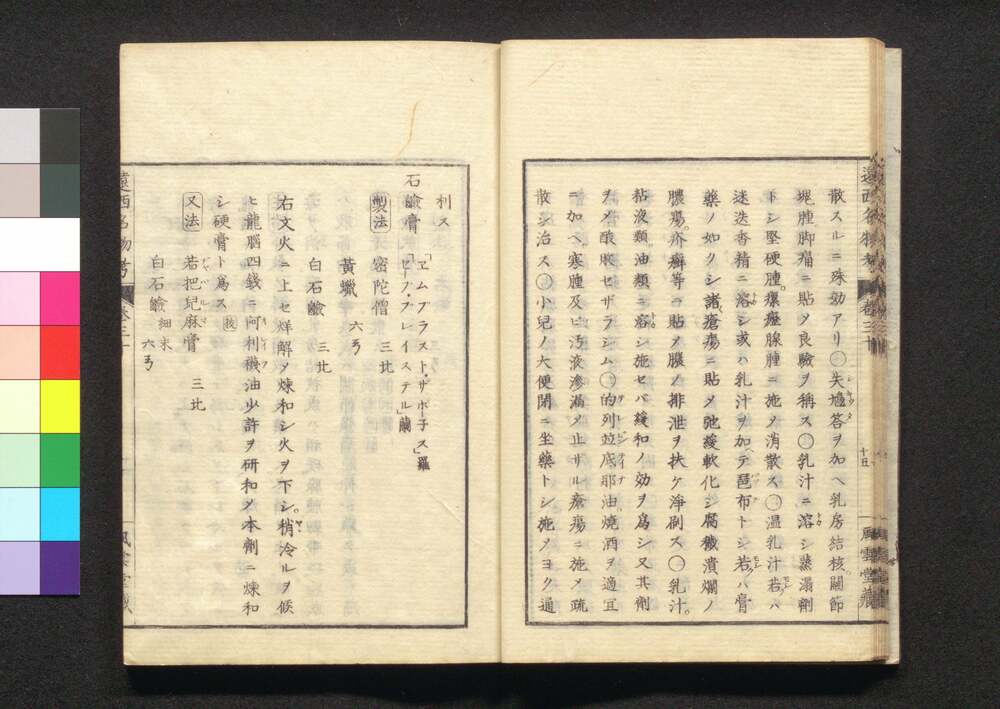 散スルニ殊効アリ〇失墟答ヲ加ヘ乳房結核關節
塊腫脚痛ニ貼メ良驗ヲ稱ス〇乳汁ニ溶シ蒸溻劑
トシ堅硬腫瘰癧腺腫ニ施メ消散ス〇溫乳汁若ハ
迷迭香精ニ溶シ或ハ乳汁ヲ加テ琶布トシ若ハ膏
藥ノ如クシ諸瘡瘍ニ貼メ弛緩軟化シ腐敗潰爛ノ
膿瘍疥癬等ニ貼メ膿ノ排泄ヲ扶ケ淨刷ス〇乳汁
粘液類油類ニ溶シ施セバ緩和ノ効ヲ爲シ又其劑
ヲメ酸敗セザラシム〇的列竝底那油燒酒ヲ適宜
ニ加ヘ寒腫及ヒ汚液滲漏メ止ザル瘡瘍ニ施メ疏
散シ治ス〇小兒ノ大便閉ニ坐藥トシ施メヨク通
利ス
石鹼膏「ヱムプラスト・サポー子ス」羅「ゼープ・プレイステル」蘭
製法 密陀僧 三比
黃蠟 六弓
白石鹼 三比
右文火ニ上セ烊解メ煉和シ火ヲ下シ稍冷ルヲ候
ヒ龍腦四錢ニ阿利襪油少許ヲ研和メ本劑ニ煉和
シ硬膏ト爲ス 扶
又法 若把兒麻膏 三比
白石鹼細末 六弓
遠西名物考 卷三十 十五 風雲堂藏